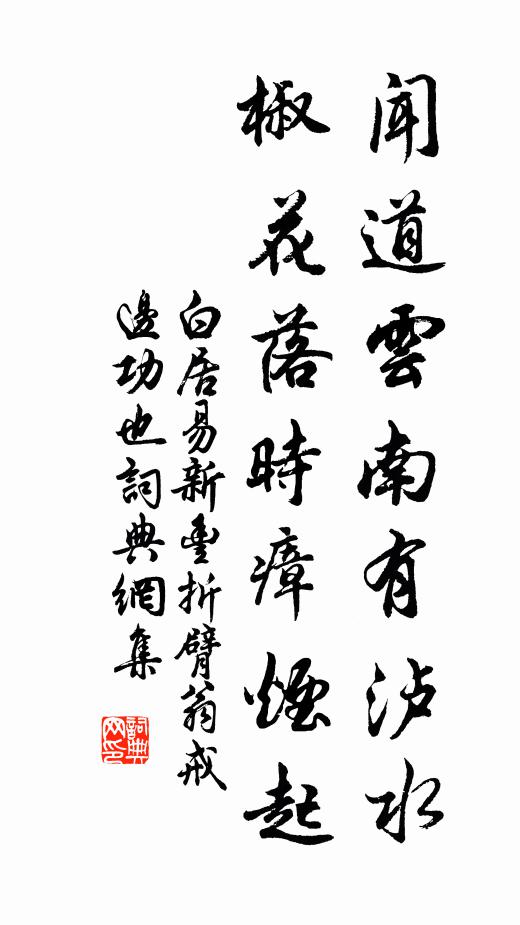 聞道雲南有泸水
椒花落時瘴煙起
白居易新豐折臂翁戒
邊功也詞典網集
詞典
网印